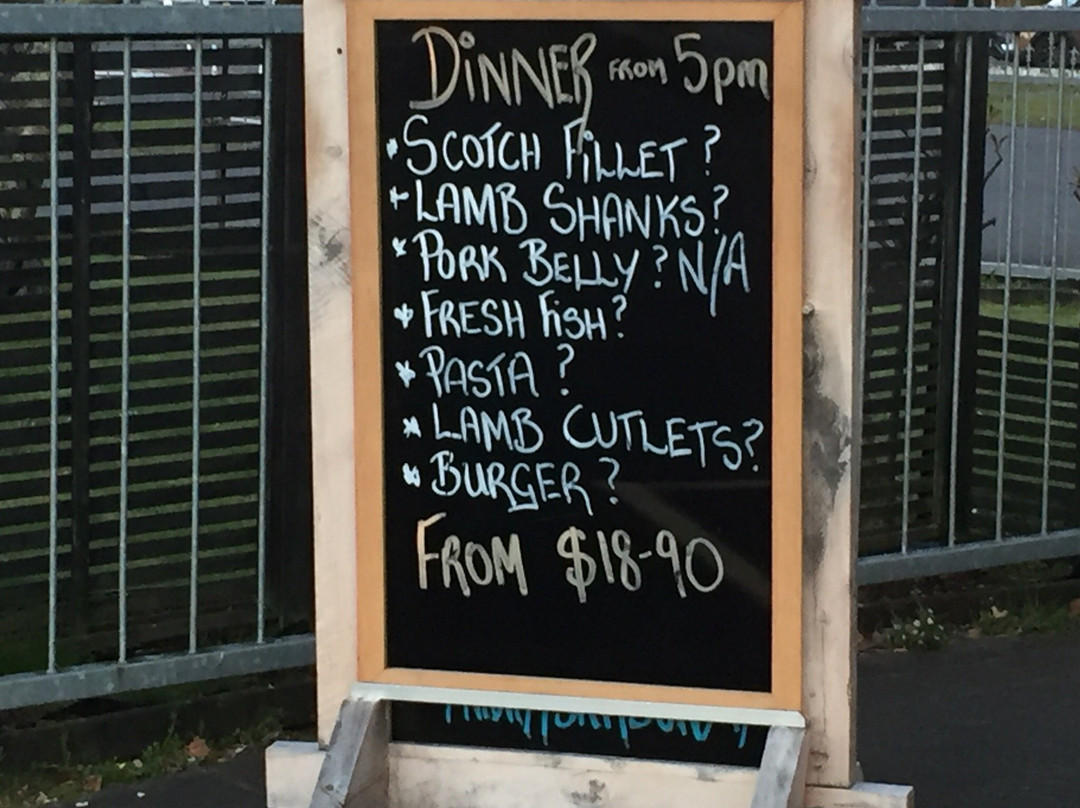 DiNNER FROM 5pm
* SCOTCH FiLLET ?
* LAMB SHANKS?
* PORK BELLY ? N/A
* FRESH FisH?
* PASTA ?
* LAMB CUTLETS?
* BURGER ?
FROM $18-90